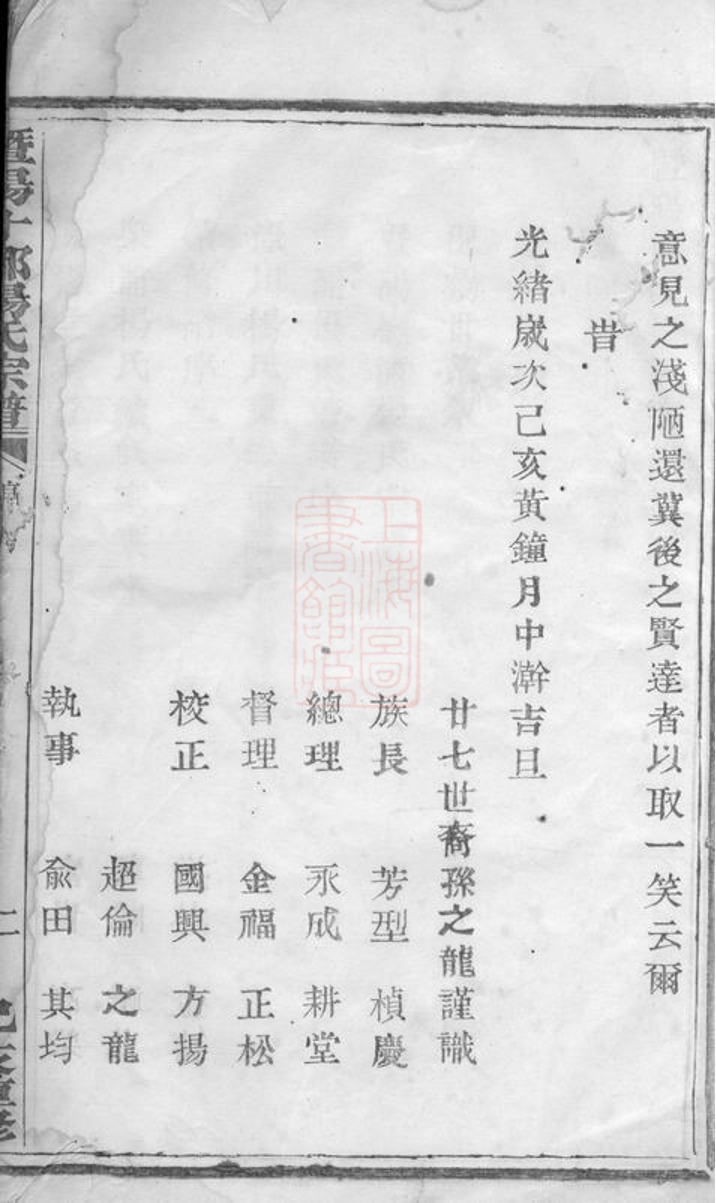 意見之淺陋還冀後之賢達者以取一笑云爾
旹
光緒歲次己亥黃鐘月中澣吉旦
廿七世裔孫之龍謹識
族長 芳型 楨慶
總理 永成 耕堂
督理 金福 正松
校正 國興 方揚
超倫 之龍
執事 俞田 其均
暨陽 楊氏宗譜
二
己亥重修
上海圖書館藏